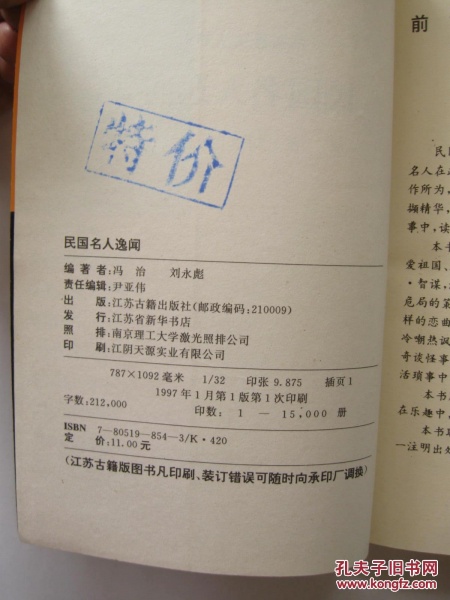 特价
民国名人逸闻
编著者：冯 治 刘永彪
责任编辑：尹亚伟
出 版：江苏古籍出版社（邮政编码：210009）
发 行：江苏省新华书店
照 排：南京理工大学激光照排公司
印 刷：江阴天源实业有限公司
787×1092毫米 1/32 印张 9.875 插页 1
1997年1月第1版第1次印刷
字数：212,000 印数：1—15,000 册
ISBN 7-80519-854-3/K·420
定 价：11.00元
（江苏古籍版图书凡印刷、装订错误可随时向承印厂调换）
前
民国
名人在
作所为，
撷精华，
事中，读
本书
爱祖国、
·智谋，
危局的策
样的恋曲
冷嘲热讽
奇谈怪事
活琐事中
本书
在乐趣中，
本书
一注明出处
孔夫子旧书网
www.kongfz.com